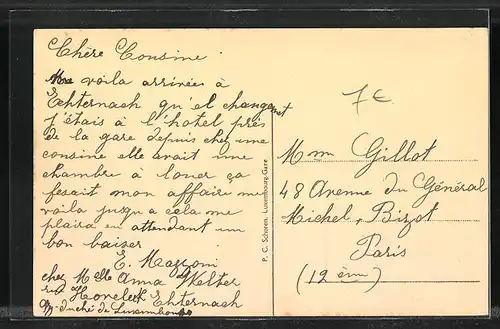 Chère Cousine
Me voila arrivée à
Echternach qu'el changement
j'étais à l'hotel près
de la gare depuis chez une
cousine elle avait une
chambre à louer ça
fesait mon affaire me
voila jusqu a cela me
plaira en attendant un
bon baiser
E. Mazzoni
chez Melle Anna Welter
rue Hovelek Echternach
G/d duché de Luxembourg
P. C. Schoren, Luxembourg-Gare
7€
Mme Gillot
48 Avenue du Général
Michel, Bizot
Paris
(12 ème)